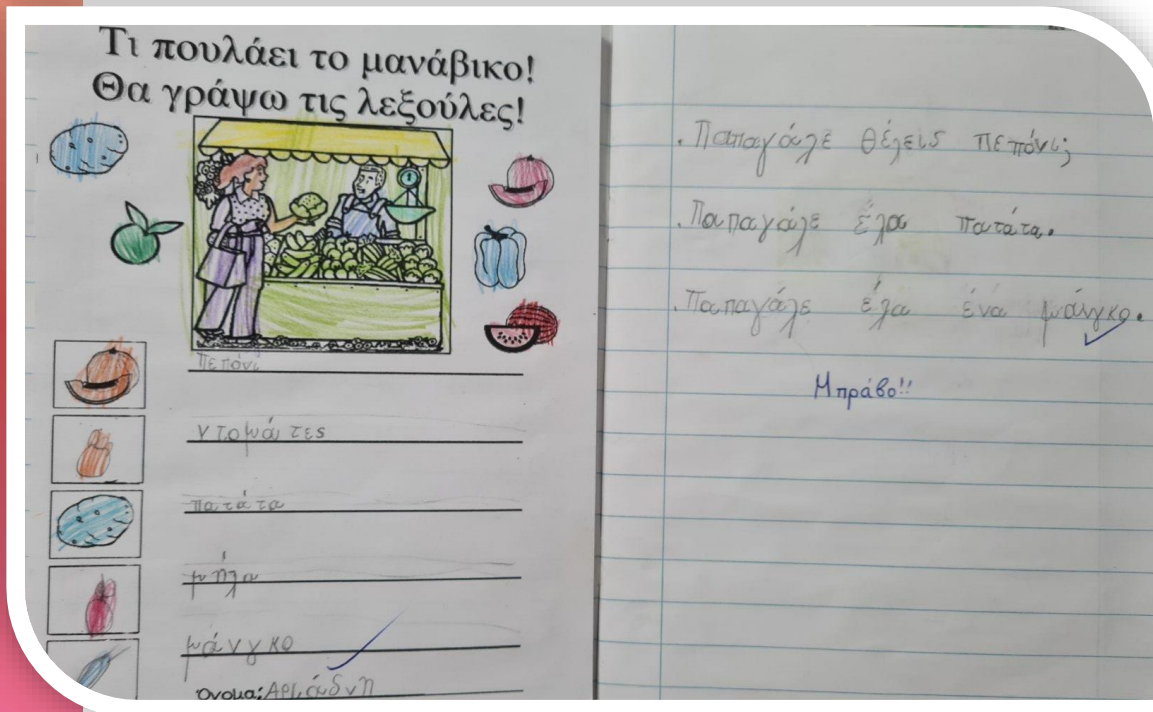 Τι πουλάει το μανάβικο!
Θα γράψω τις λεξούλες!
πεπόνι
ντομάτες
πατάτα
μήλα
μάνγκο
Όνομα: Αριάδνη
. Παπαγάλε θέλεις πεπόνι;
. Παπαγάλε έλα πατάτα.
. Παπαγάλε έλα ένα μάνγκο.
Μπράβο!!